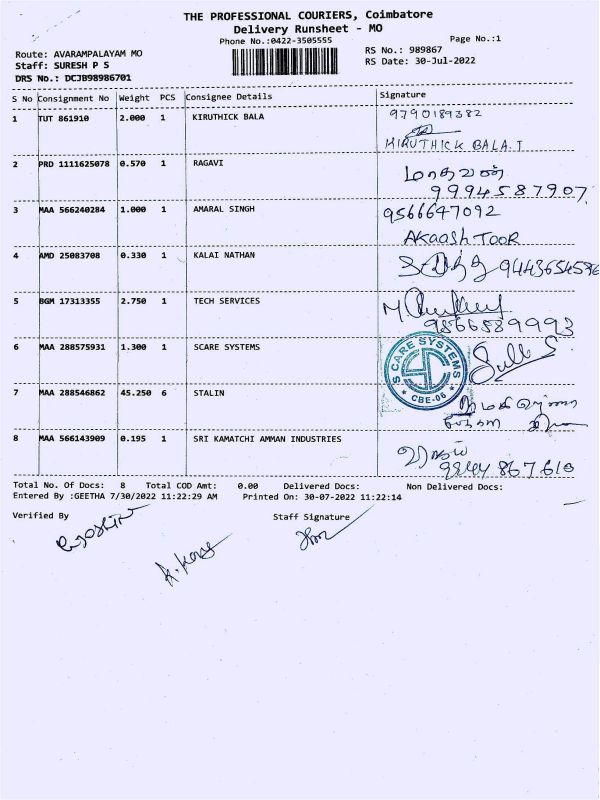 THE PROFESSIONAL COURIERS, Coimbatore
Delivery Runsheet - MO
Phone No.:0422-3505555 Page No.:1
Route: AVARAMPALAYAM MO RS No.: 989867
Staff: SURESH P S RS Date: 30-Jul-2022
DRS No.: DCJB98986701
S No Consignment No Weight PCS Consignee Details Signature
1 TUT 861910 2.000 1 KIRUTHICK BALA 9790189382
KIRUTHICK BALA.T
2 PRD 1111625078 0.570 1 RAGAVI மாதவன்
9994587907
3 MAA 566240284 1.000 1 AMARAL SINGH 9566647092
AKaash TOOR
4 AMD 25083708 0.330 1 KALAI NATHAN 9443654596
5 BGM 17313355 2.750 1 TECH SERVICES
9566589993
6 MAA 288575931 1.300 1 SCARE SYSTEMS
S CARE SYSTEMS
* CBE-06 *
7 MAA 288546862 45.250 6 STALIN
8 MAA 566143909 0.195 1 SRI KAMATCHI AMMAN INDUSTRIES
9844 867610
Total No. Of Docs: 8 Total COD Amt: 0.00 Delivered Docs: Non Delivered Docs:
Entered By :GEETHA 7/30/2022 11:22:29 AM Printed On: 30-07-2022 11:22:14
Verified By Staff Signature